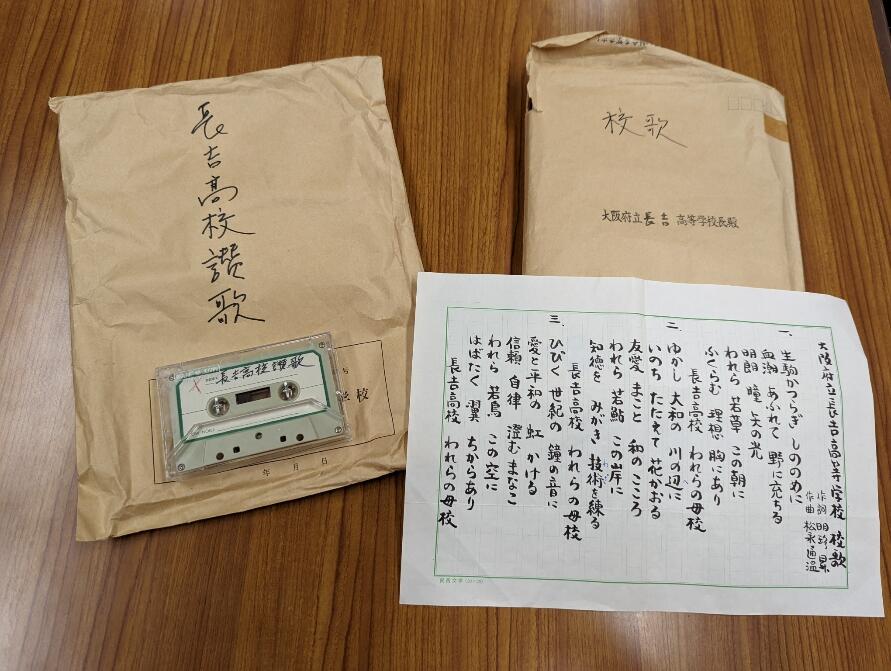 長吉高校讃歌
長吉高校讃歌
年 月 日
校歌
大阪府立長吉高等学校長殿
大阪府立長吉高等学校 校歌
作曲 松永通温
一、
生駒かつらぎ しののめに
血潮 あふれて 野に充ちる
明朗 瞳 矢の光
われら 若草 この朝に
ふくらむ 理想 胸にあり
長吉高校 われらの母校
二、
ゆかし 大和の 川の辺に
いのち たたえて 花かおる
友愛 まこと 和の こころ
われら 若鮎 この岸に
知徳を みがき 技術を練る
長吉高校 われらの母校
三、
ひびく 世紀の 鐘の音に
愛と平和の 虹 かける
信頼 自律 澄むまなこ
われら 若鳥 この空に
はばたく 翼 ちからあり
長吉高校 われらの母校